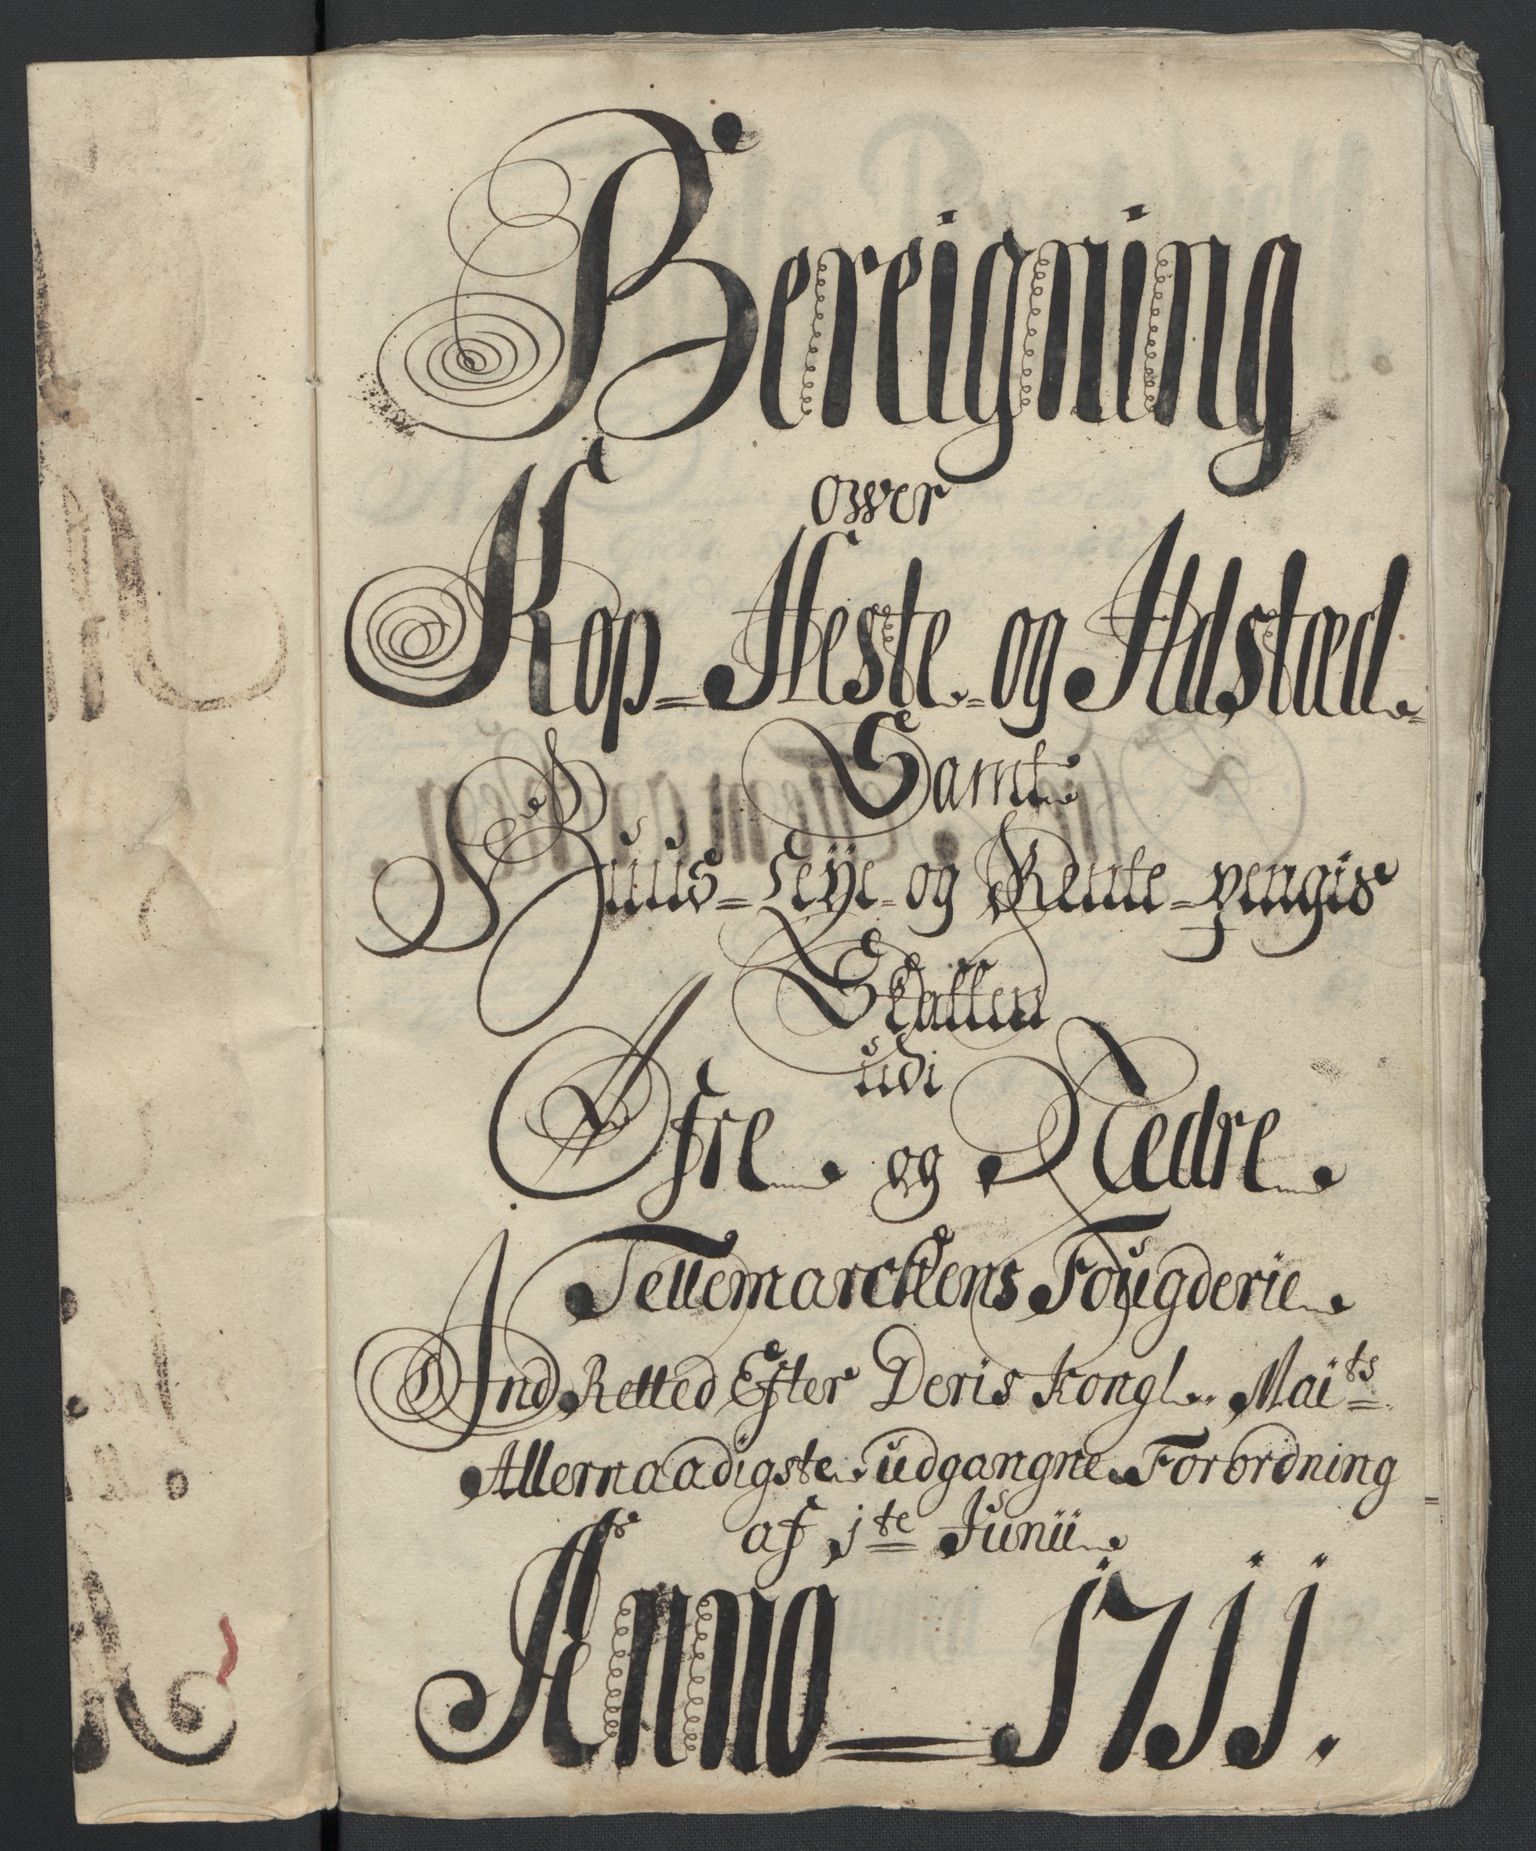 Bereigning
over
Kop=Heste=og Ildstæd=
Samt
Huus=Leÿe=og Rente=pengis
Skatten
udi
Øfre og Nedre
Tellemarckens Fougderie
Ind Retted Efter Deris Kongl. Maits
Allernaadigste udgangne Forordning
af 1te Junii
Anno=1711.